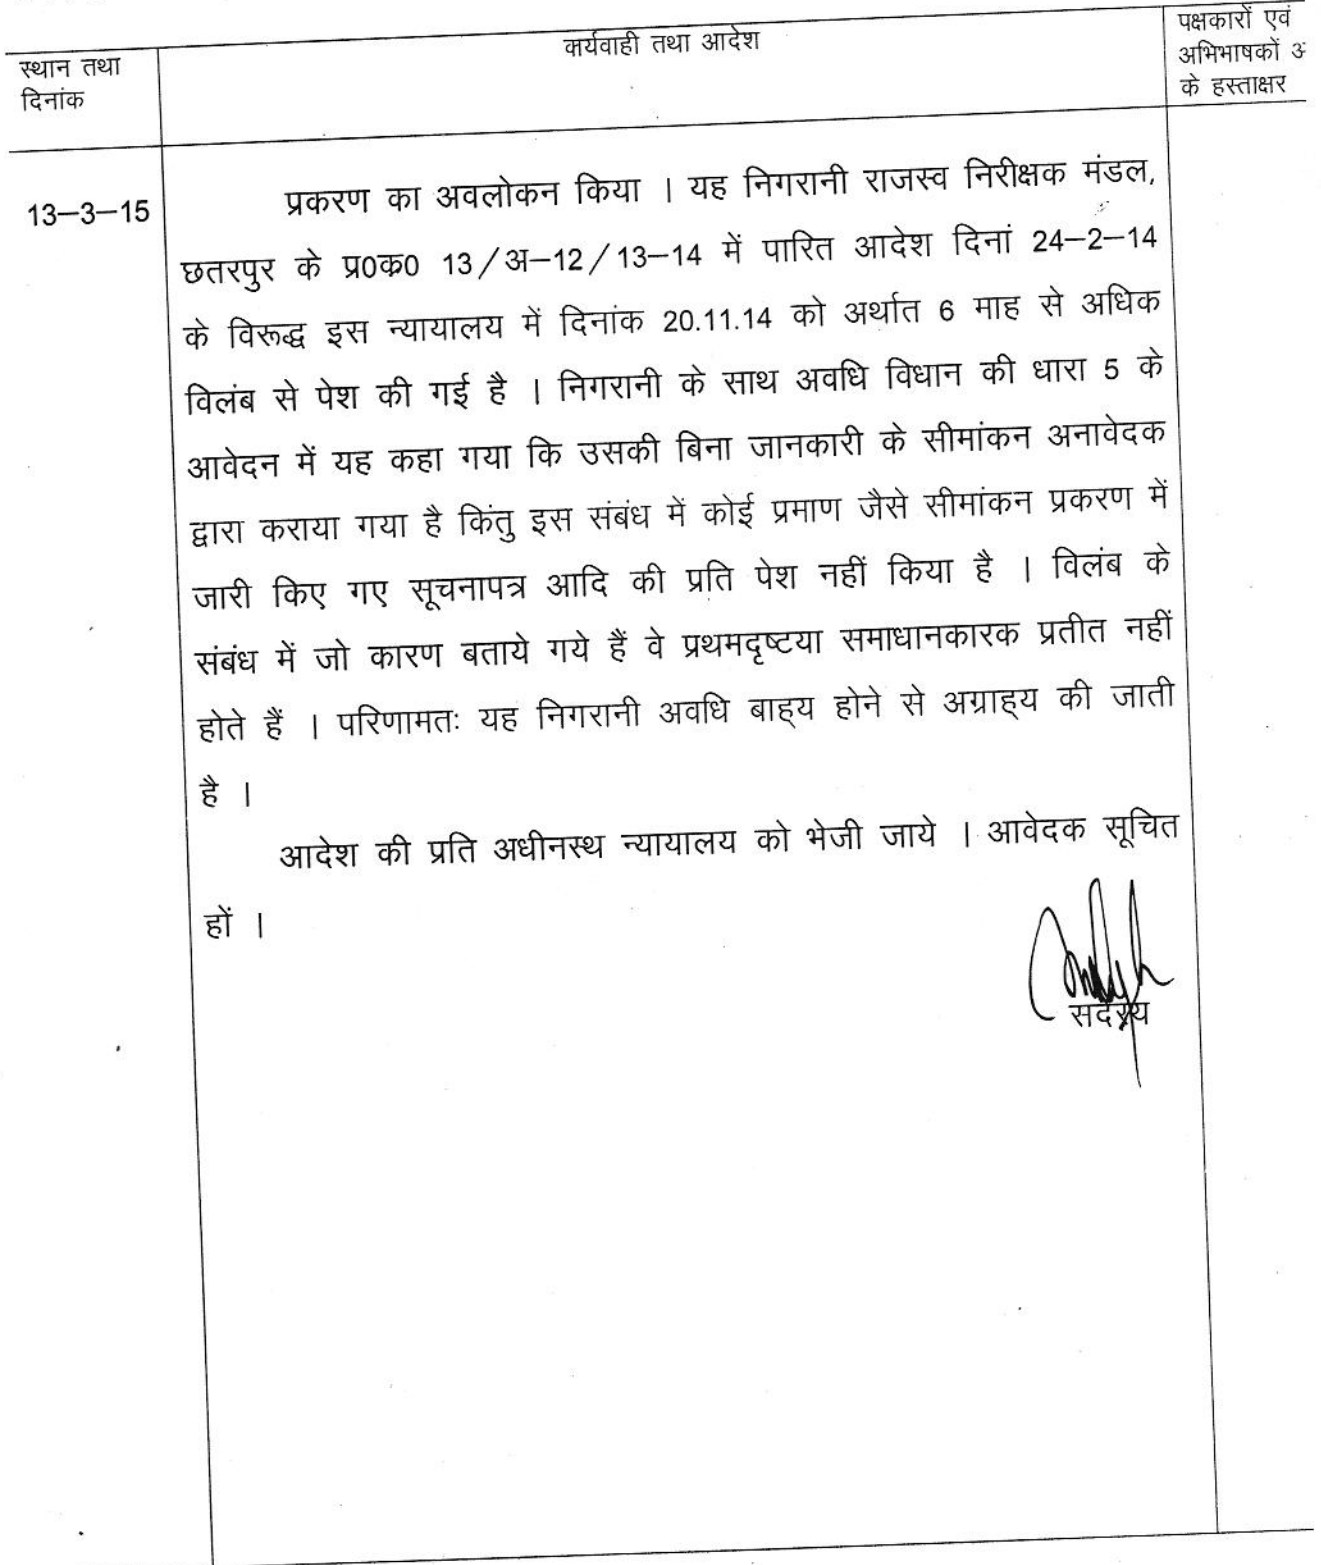 स्थान तथा
दिनांक
कार्यवाही तथा आदेश
पक्षकारों एवं
अभिभाषकों
के हस्ताक्षर
13–3–15
प्रकरण का अवलोकन किया । यह निगरानी राजस्व निरीक्षक मंडल,
छतरपुर के प्र0क0 13/अ–12/13–14 में पारित आदेश दिनां 24–2–14
के विरूद्ध इस न्यायालय में दिनांक 20.11.14 को अर्थात 6 माह से अधिक
विलंब से पेश की गई है । निगरानी के साथ अवधि विधान की धारा 5 के
आवेदन में यह कहा गया कि उसकी बिना जानकारी के सीमांकन अनावेदक
द्वारा कराया गया है किंतु इस संबंध में कोई प्रमाण जैसे सीमांकन प्रकरण में
जारी किए गए सूचनापत्र आदि की प्रति पेश नहीं किया है । विलंब के
संबंध में जो कारण बताये गये हैं वे प्रथमदृष्टया समाधानकारक प्रतीत नहीं
होते हैं । परिणामतः यह निगरानी अवधि बाह्य होने से अग्राह्य की जाती
है ।
आदेश की प्रति अधीनस्थ न्यायालय को भेजी जाये । आवेदक सूचित
हों ।
सदस्य